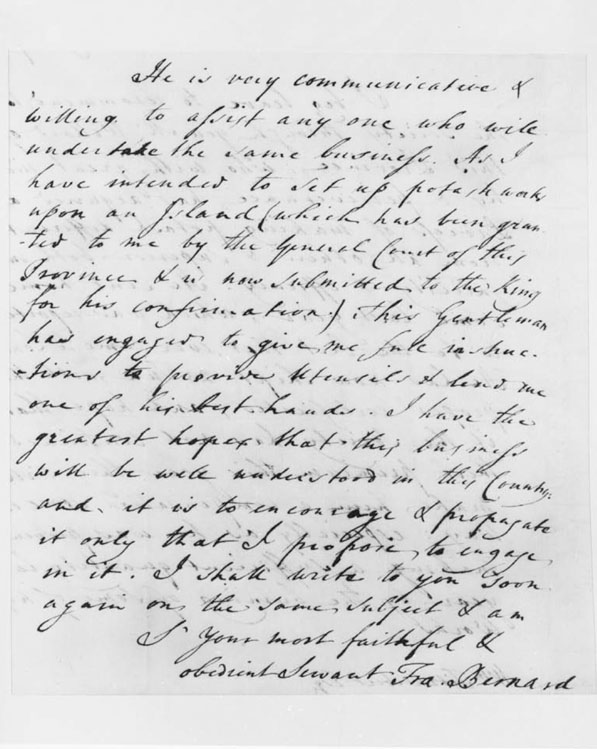 He is very communicative &
willing to assist any one who will
undertake the same business. As I
have intended to set up potashworks
upon an Island (which has been gran-
-ted to me by the General Court of this
Province & is now submitted to the King
for his confirmation.) This Gentleman
has engaged to give me full instruc-
-tions to provide Utensils & lend me
one of his best hands. I have the
greatest hopes that this business
will be well understood in this Country
and it is to encourage & propagate
it only that I propose to engage
in it. I shall write to you soon
again on the same subject & am
Sr Your most faithful &
obedient Servant Fra. Bernard